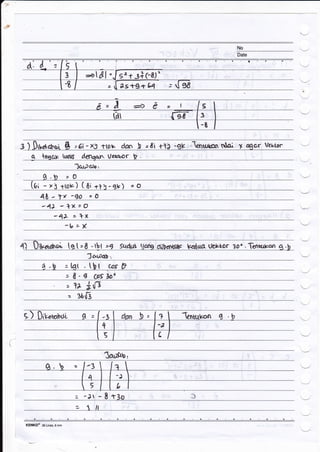 No
Date
d. d = ( 5 3 -8 ) ⇒ |d| = √5² + 3² + (-8)²
= √25 + 9 + 64 = √98
ê = d / |d| ⇒ ê = 1/√98 ( 5 3 -8 )
3) Diketahui a = 6i - xj + 10k dan b = 8i + 7j - 9k. Tentukan nilai x agar vektor
a tegak lurus dengan vektor b
Jawab:
a . b = 0
(6i - xj + 10k) (8i + 7j - 9k) = 0
48 - 7x - 90 = 0
-42 - 7x = 0
-42 = 7x
-6 = x
4) Diketahui |a| = 8 . |b| = 9 sudut yang dibentuk kedua vektor 30°. Tentukan a.b
Jawab.
a . b = |a| . |b| cos θ
= 8 . 9 cos 30°
= 72 ½√3
= 36√3
5.) Diketahui a = ( -3 4 5 ) dan b = ( 7 -2 6 ) Tentukan a . b
Jawab.
a . b = ( -3 4 5 ) ( 7 -2 6 )
= -21 - 8 + 30
= 1 //